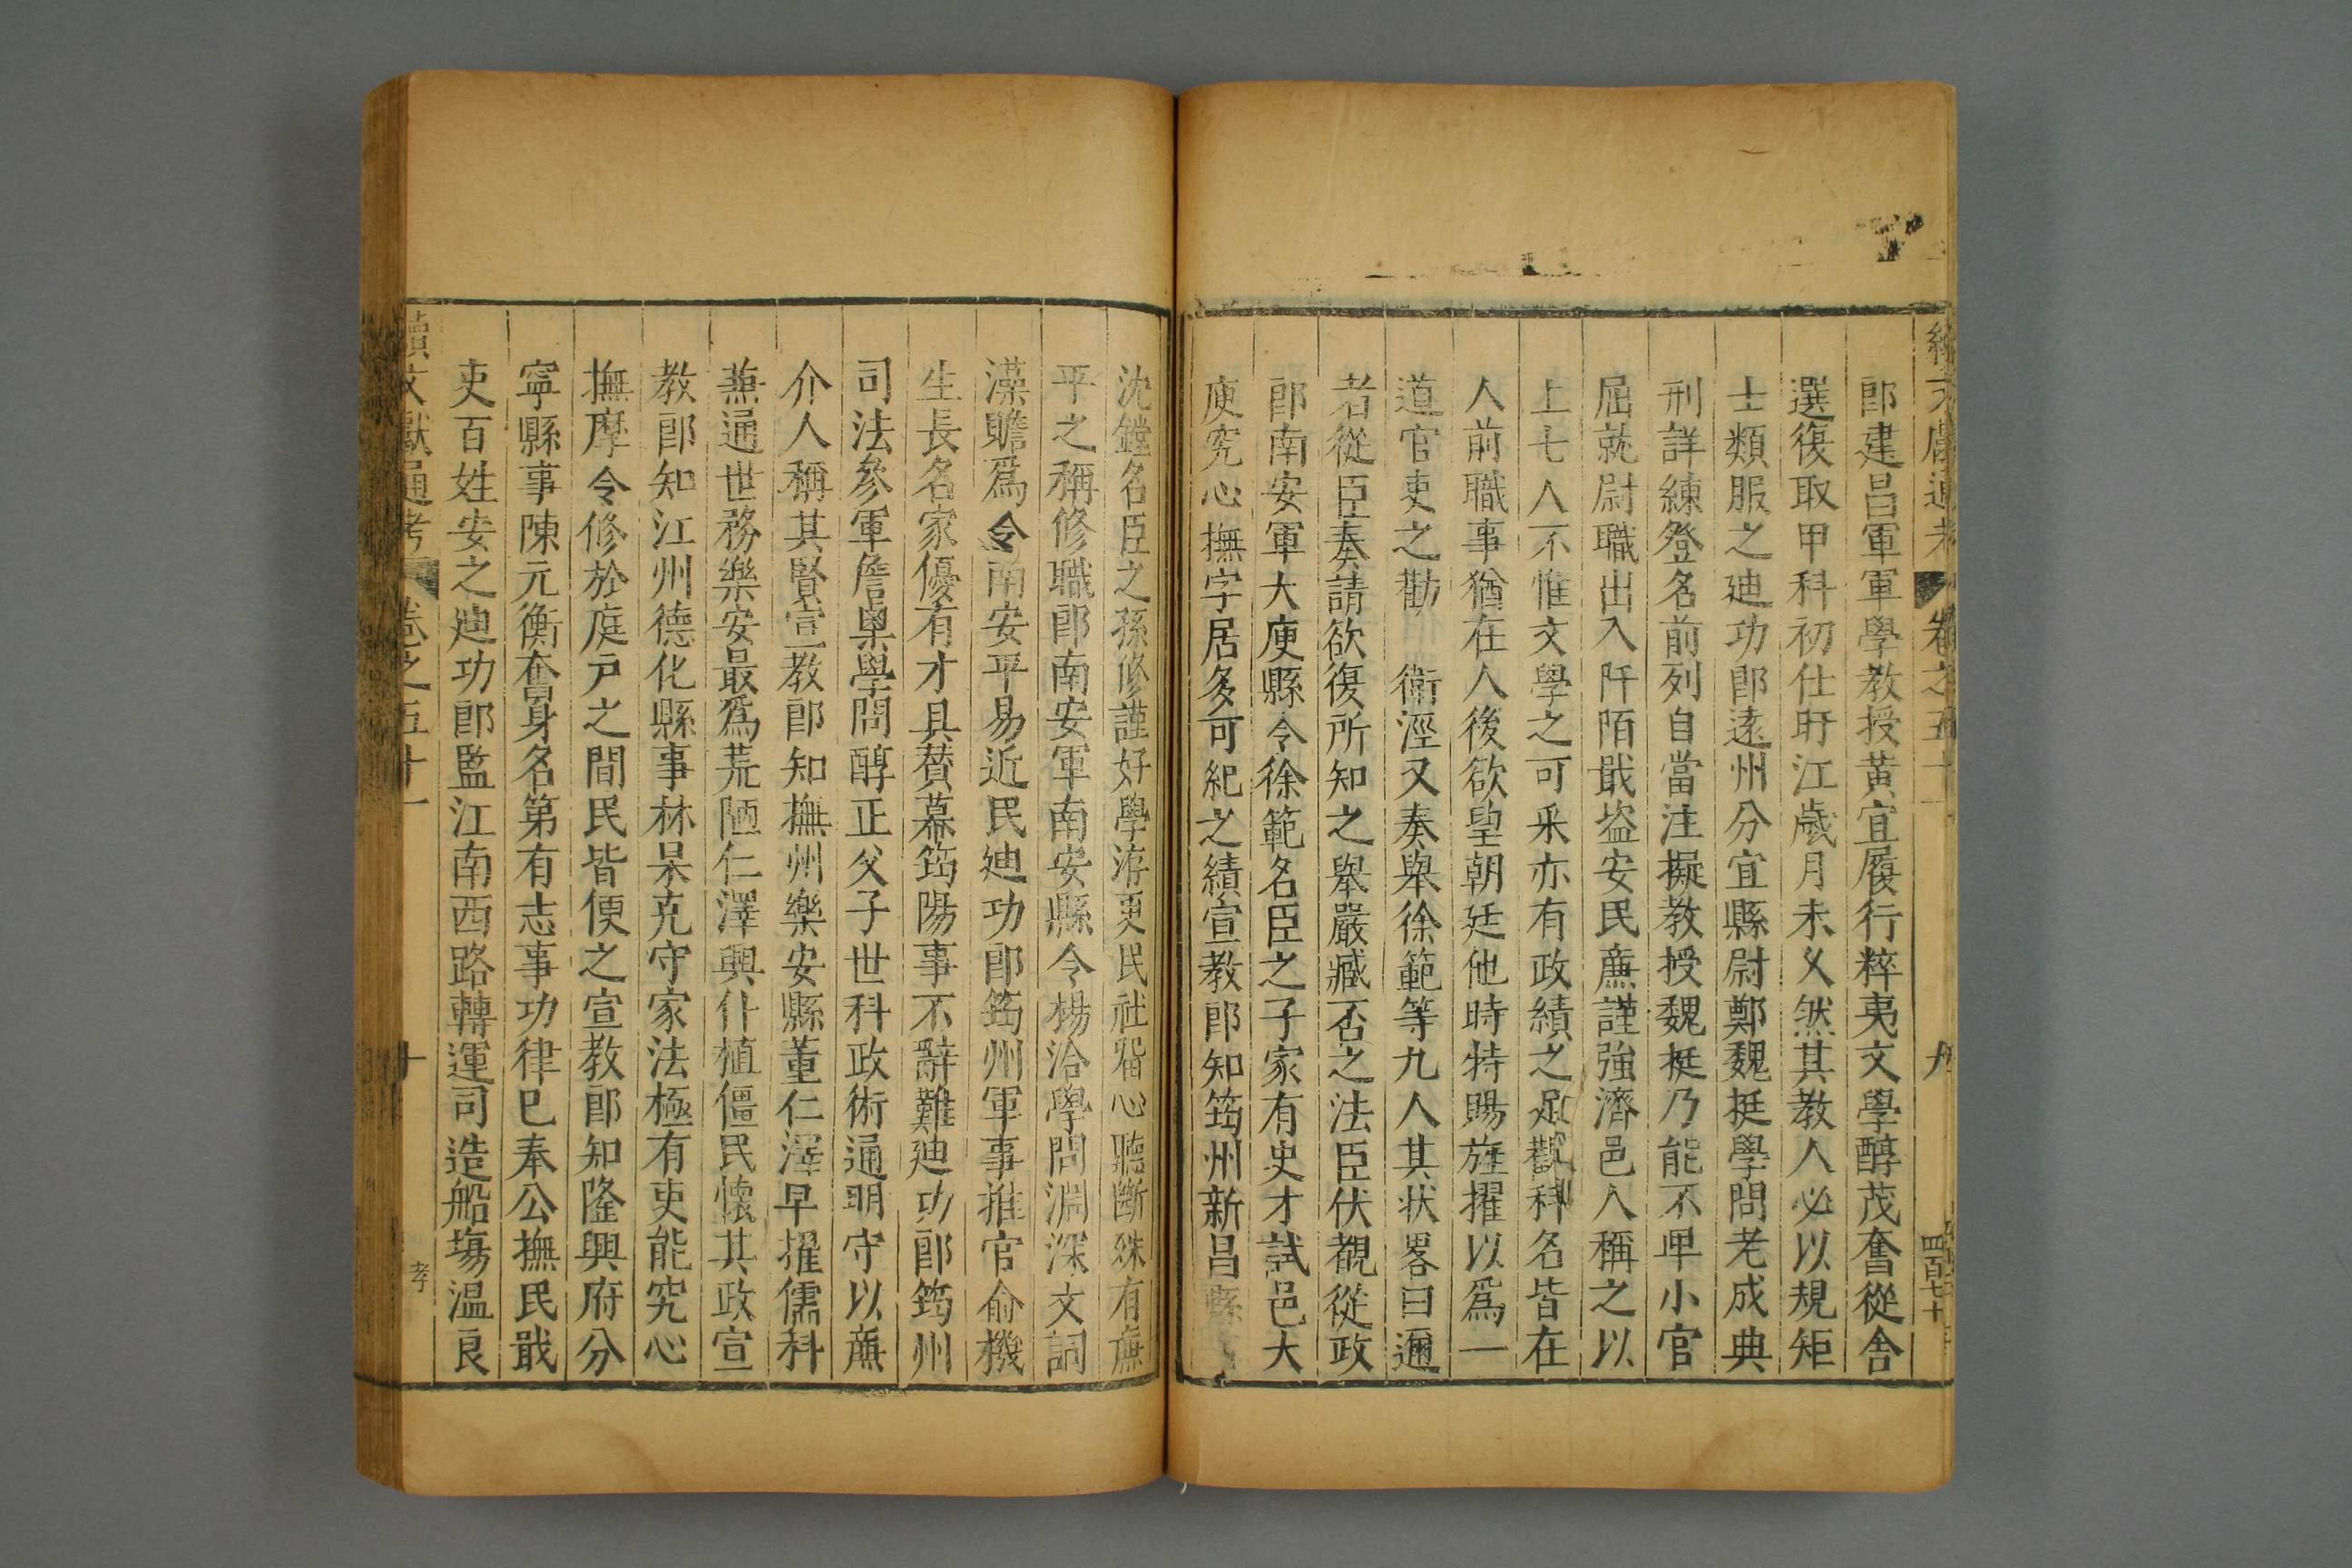 郎建昌軍軍學教授黃宜履行粹夷文學醇茂奮從舍
選復取甲科初仕旴江歲月未乆然其教人必以規矩
士類服之廸功郎遠州分宜縣尉鄭魏挺學問老成典
刑詳練登名前列自當注擬教授魏挺乃能不卑小官
屈就尉職出入阡陌戢盜安民亷謹強濟邑人稱之以
上七人不惟文學之可采亦有政績之足觀科名皆在
人前職事猶在人後欲望朝廷他時特賜旌擢以爲一
道官吏之勸 衛涇又奏舉徐範等九人其状畧曰邇
者從臣奏請欲復所知之舉嚴臧否之法臣伏覩從政
郎南安軍大庾縣令徐範名臣之子家有史才試邑大
庾究心撫字居多可紀之績宣教郎知筠州新昌縣
沈鏜名臣之孫修謹好學游更民社留心聽斷綵有亷
平之稱修職郎南安軍南安縣令楊洽學問淵深文詞
藻贍爲令南安平易近民廸功郎筠州軍事推官俞機
生長名家優有才具賛幕筠陽事不辭難廸功郎筠州
司法參軍詹㮚學問醇正父子世科政術通明守以亷
介人稱其賢宣教郎知撫州樂安縣董仁澤早擢儒科
兼通世務樂安最爲荒陋仁澤興仆植僵民懷其政宣
教郎知江州德化縣事林杲克守家法極有吏能究心
撫摩令修於庭户之間民皆便之宣教郎知隆興府分
寧縣事陳元衡奮身名第有志事功律已奉公撫民戢
吏百姓安之廸功郎監江南西路轉運司造船塲温良
續文獻通考 卷之五十一 十